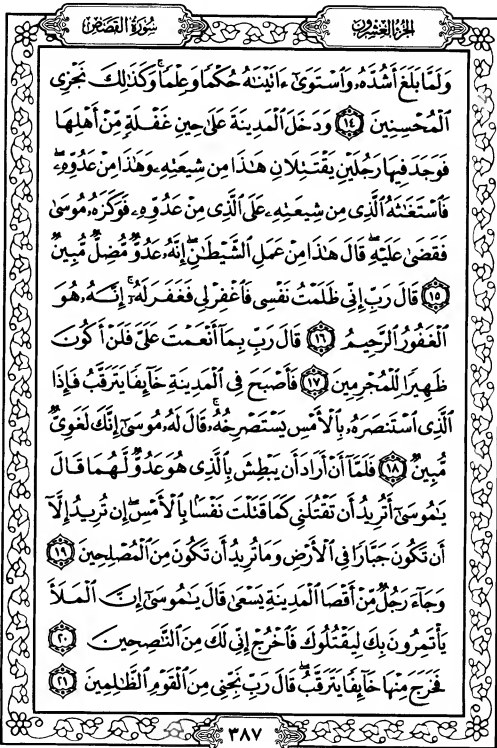 سُورَةُ القَصَصِ
الجُزْءُ العِشْرُونَ
وَلَمَّا بَلَغَ أَشُدَّهُۥ وَٱسْتَوَىٰٓ ءَاتَيْنَٰهُ حُكْمًا وَعِلْمًا ۚ وَكَذَٰلِكَ نَجْزِى
ٱلْمُحْسِنِينَ ١٤ وَدَخَلَ ٱلْمَدِينَةَ عَلَىٰ حِينِ غَفْلَةٍ مِّنْ أَهْلِهَا
فَوَجَدَ فِيهَا رَجُلَيْنِ يَقْتَتِلَانِ هَٰذَا مِن شِيعَتِهِۦ وَهَٰذَا مِنْ عَدُوِّهِۦ ۖ
فَٱسْتَغَٰثَهُ ٱلَّذِى مِن شِيعَتِهِۦ عَلَى ٱلَّذِى مِنْ عَدُوِّهِۦ فَوَكَزَهُۥ مُوسَىٰ
فَقَضَىٰ عَلَيْهِ ۖ قَالَ هَٰذَا مِنْ عَمَلِ ٱلشَّيْطَٰنِ ۖ إِنَّهُۥ عَدُوٌّ مُّضِلٌّ مُّبِينٌ
١٥ قَالَ رَبِّ إِنِّى ظَلَمْتُ نَفْسِى فَٱغْفِرْ لِى فَغَفَرَ لَهُۥٓ ۚ إِنَّهُۥ هُوَ
ٱلْغَفُورُ ٱلرَّحِيمُ ١٦ قَالَ رَبِّ بِمَآ أَنْعَمْتَ عَلَىَّ فَلَنْ أَكُونَ
ظَهِيرًا لِّلْمُجْرِمِينَ ١٧ فَأَصْبَحَ فِى ٱلْمَدِينَةِ خَآئِفًا يَتَرَقَّبُ فَإِذَا
ٱلَّذِى ٱسْتَنصَرَهُۥ بِٱلْأَمْسِ يَسْتَصْرِخُهُۥ ۚ قَالَ لَهُۥ مُوسَىٰٓ إِنَّكَ لَغَوِىٌّ
مُّبِينٌ ١٨ فَلَمَّآ أَنْ أَرَادَ أَن يَبْطِشَ بِٱلَّذِى هُوَ عَدُوٌّ لَّهُمَا قَالَ
يَٰمُوسَىٰٓ أَتُرِيدُ أَن تَقْتُلَنِى كَمَا قَتَلْتَ نَفْسًۢا بِٱلْأَمْسِ ۖ إِن تُرِيدُ إِلَّآ
أَن تَكُونَ جَبَّارًا فِى ٱلْأَرْضِ وَمَا تُرِيدُ أَن تَكُونَ مِنَ ٱلْمُصْلِحِينَ ١٩
وَجَآءَ رَجُلٌ مِّنْ أَقْصَا ٱلْمَدِينَةِ يَسْعَىٰ قَالَ يَٰمُوسَىٰٓ إِنَّ ٱلْمَلَأَ
يَأْتَمِرُونَ بِكَ لِيَقْتُلُوكَ فَٱخْرُجْ إِنِّى لَكَ مِنَ ٱلنَّٰصِحِينَ ٢٠
فَخَرَجَ مِنْهَا خَآئِفًا يَتَرَقَّبُ ۖ قَالَ رَبِّ نَجِّنِى مِنَ ٱلْقَوْمِ ٱلظَّٰلِمِينَ ٢١
٣٨٧